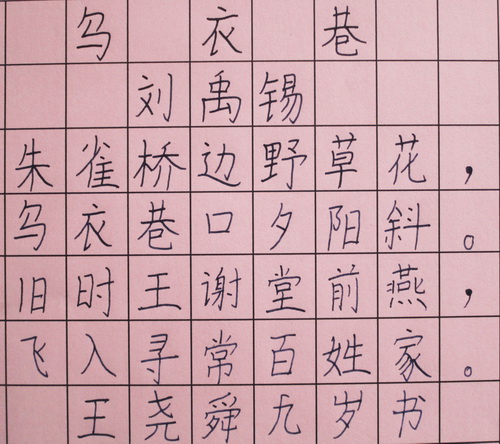 乌衣巷
刘禹锡
朱雀桥边野草花，
乌衣巷口夕阳斜。
旧时王谢堂前燕，
飞入寻常百姓家。
王尧舜九岁书